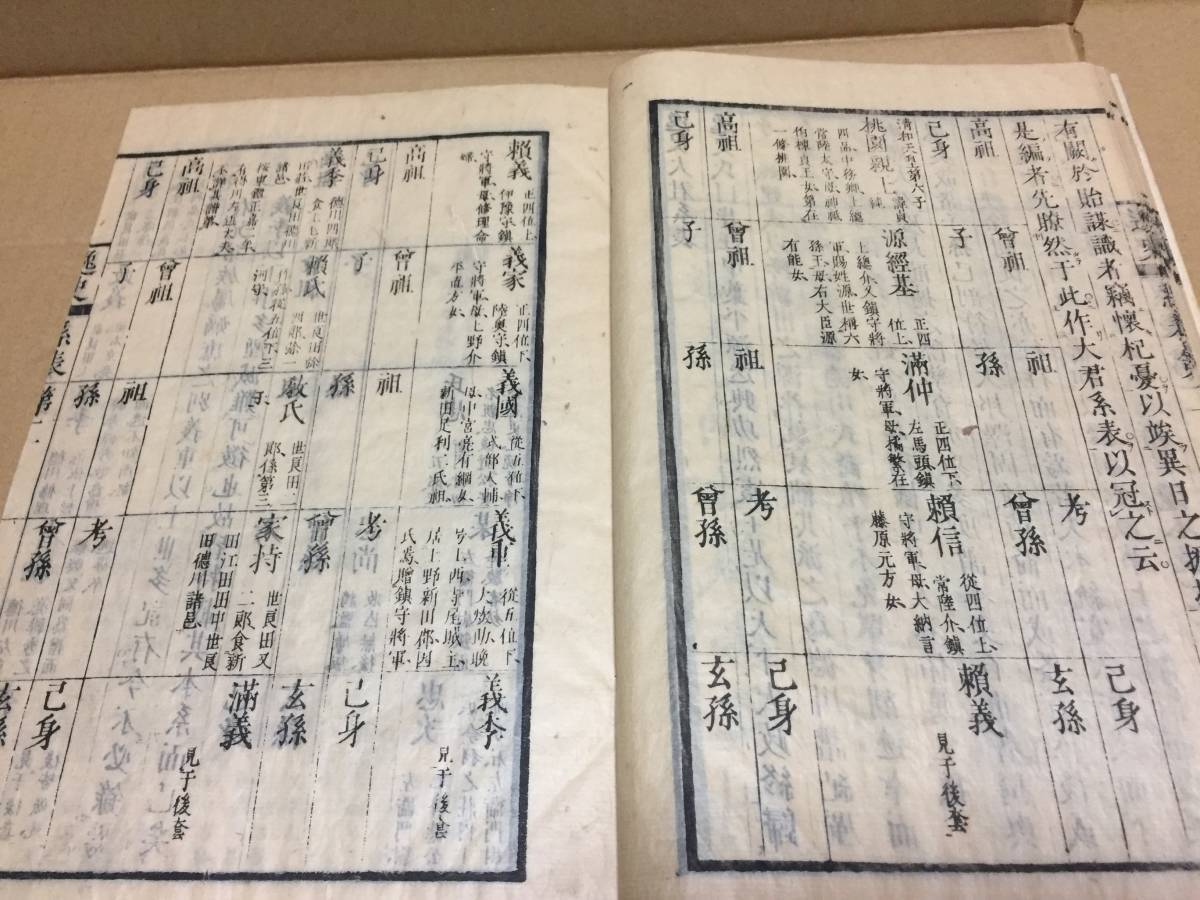 有關於貽謀識者竊懷杞憂以竢異日之
是編者先瞭然于此作大君系表以冠之云
高祖
曾祖
祖
考
己身
己身
子
孫
曾孫
玄孫
桃園親王
清和天皇第六子
四品中務卿上總
常陸太守母神祇
伯棟貞王女第在
一條桃園
源經基
正四
位上
上總介又鎮守將
軍賜姓源世稱六
孫王母右大臣源
有能女
滿仲
正四位下
左馬頭鎮
守將軍母橘繁在
女
賴信
從四位上
常陸介鎮
守將軍母大納言
藤原元方女
賴義
見于後套
高祖
曾祖
祖
考
己身
己身
子
孫
曾孫
玄孫
賴義
正四位上
伊豫守鎮
守將軍母修理命
婦
義家
正四位下
陸奧守鎮
守將軍母上野介
平直方女
義國
從五位下
式部大輔
母中宮亮有綱女
新田足利二氏祖
義重
從五位下
大炊助晚
号上西寺尾城主
居上野新田郡因
氏焉贈鎮守將軍
義季
見于後套
高祖
曾祖
祖
考
己身
己身
子
孫
曾孫
玄孫
義季
德川四郎
食上毛新
田莊世良田德川
諸邑
賴氏
世良田餘
四郎
從五位下三
河守
敎氏
世良田二
郎係第三
子
家持
世良田又
二郎食新
田江田田中世良
田德川諸邑
滿義
見于後套
高祖
曾祖
祖
考
己身
己身
子
孫
曾孫
玄孫
逸史
系表